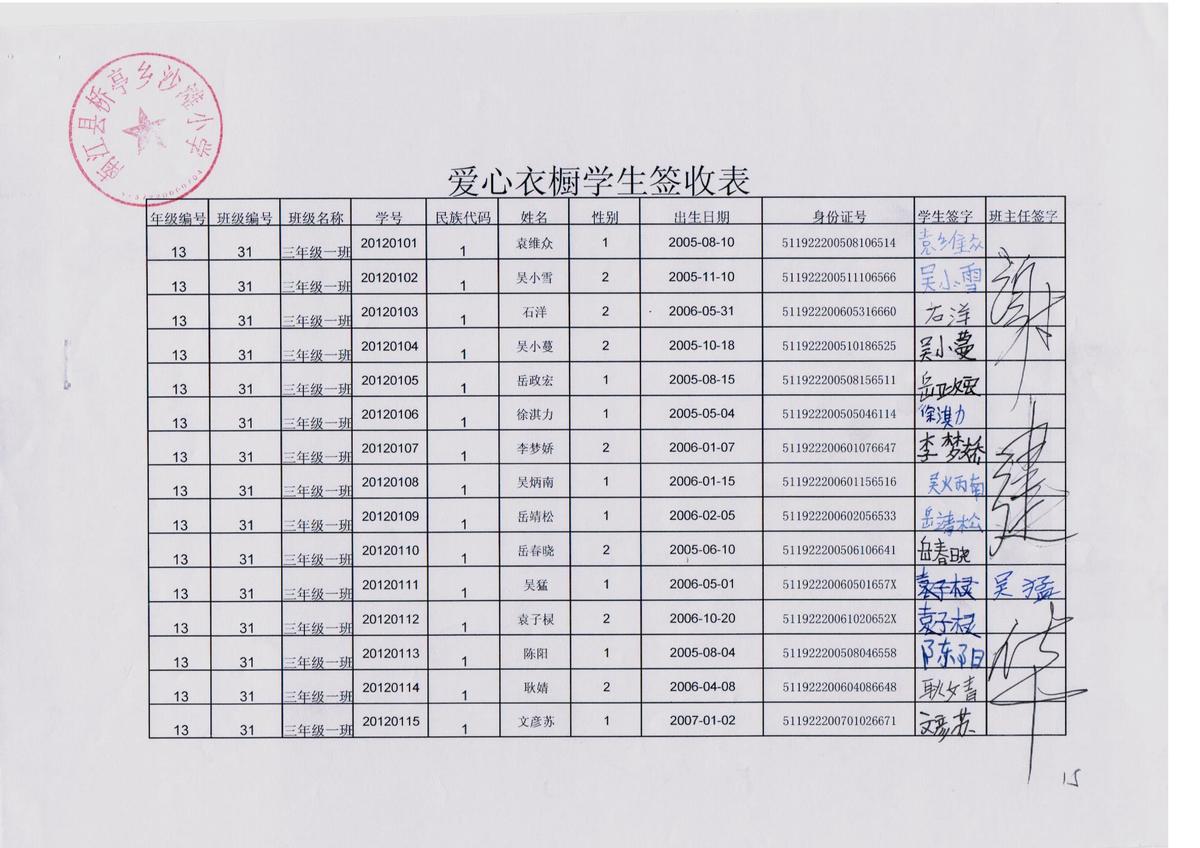 南江县桥亭乡沙滩小学
爱心衣橱学生签收表
年级编号 班级编号 班级名称 学号 民族代码 姓名 性别 出生日期 身份证号 学生签字 班主任签字
13 31 三年级一班 20120101 1 袁维众 1 2005-08-10 511922200508106514 袁维众
13 31 三年级一班 20120102 1 吴小雪 2 2005-11-10 511922200511106566 吴小雪
13 31 三年级一班 20120103 1 石洋 2 2006-05-31 511922200605316660 石洋
13 31 三年级一班 20120104 1 吴小蔓 2 2005-10-18 511922200510186525 吴小蔓
13 31 三年级一班 20120105 1 岳政宏 1 2005-08-15 511922200508156511 岳政宏
13 31 三年级一班 20120106 1 徐淇力 1 2005-05-04 511922200505046114 徐淇力
13 31 三年级一班 20120107 1 李梦娇 2 2006-01-07 511922200601076647 李梦娇
13 31 三年级一班 20120108 1 吴炳南 1 2006-01-15 511922200601156516 吴炳南
13 31 三年级一班 20120109 1 岳靖松 1 2006-02-05 511922200602056533 岳靖松
13 31 三年级一班 20120110 1 岳春晓 2 2005-06-10 511922200506106641 岳春晓
13 31 三年级一班 20120111 1 吴猛 1 2006-05-01 51192220060501657X 袁子棂 吴猛
13 31 三年级一班 20120112 1 袁子棂 2 2006-10-20 51192220061020652X 袁子棂
13 31 三年级一班 20120113 1 陈阳 1 2005-08-04 511922200508046558 陈阳
13 31 三年级一班 20120114 1 耿婧 2 2006-04-08 511922200604086648 耿婧
13 31 三年级一班 20120115 1 文彦苏 1 2007-01-02 511922200701026671 文彦苏
15